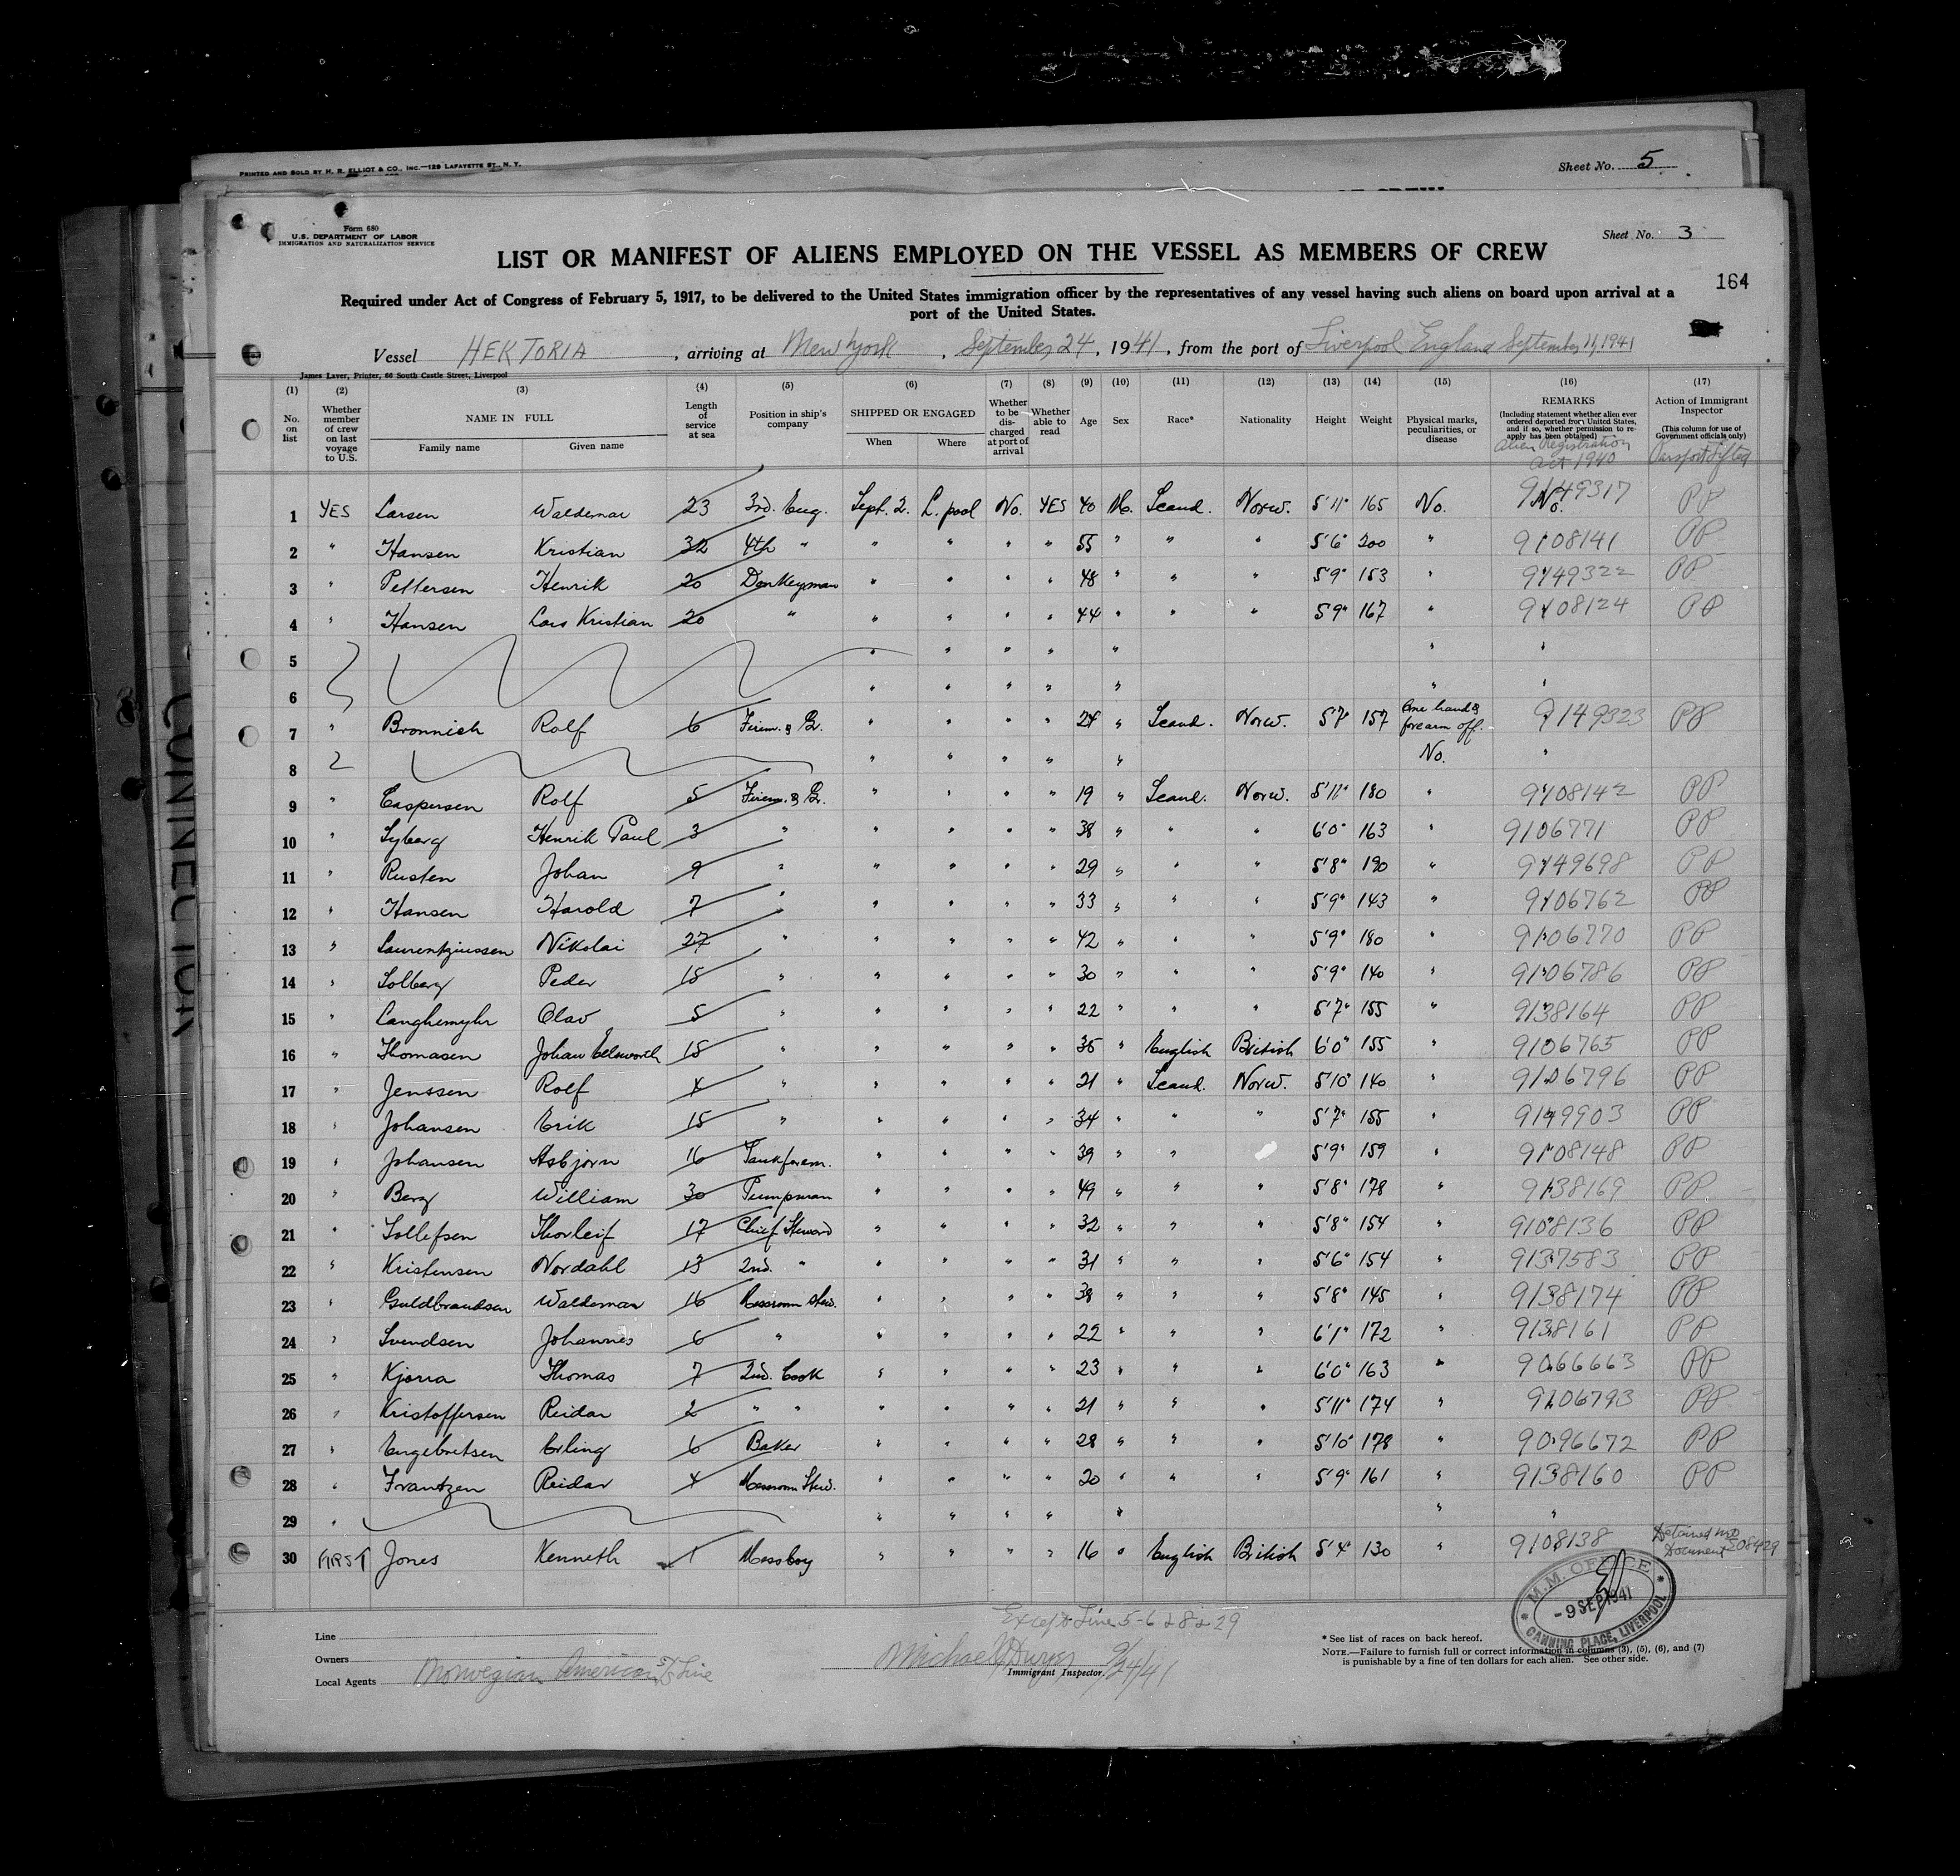 PRINTED AND SOLD BY H. R. ELLIOT & CO., INC.—129 LAFAYETTE ST., N. Y.
Sheet No. 5
Form 680
U.S. DEPARTMENT OF LABOR
IMMIGRATION AND NATURALIZATION SERVICE
Sheet No. 3
LIST OR MANIFEST OF ALIENS EMPLOYED ON THE VESSEL AS MEMBERS OF CREW
164
Required under Act of Congress of February 5, 1917, to be delivered to the United States immigration officer by the representatives of any vessel having such aliens on board upon arrival at a
port of the United States.
Vessel HEKTORIA, arriving at New York, September 24, 1941, from the port of Liverpool England September 11, 1941
James Laver, Printer, 66 South Castle Street, Liverpool
(1) (2) (3) (4) (5) (6) (7) (8) (9) (10) (11) (12) (13) (14) (15) (16) (17)
No. on list
Whether member of crew on last voyage to U.S.
NAME IN FULL
Family name Given name
Length of service at sea
Position in ship's company
SHIPPED OR ENGAGED
When Where
Whether to be discharged at port of arrival
Whether able to read
Age Sex Race* Nationality Height Weight
Physical marks, peculiarities, or disease
REMARKS
(Including statement whether alien ever ordered deported from United States, and if so, whether permission to re-apply has been obtained)
Alien Registration Act 1940
Action of Immigrant Inspector
(This column for use of Government officials only)
Passport lifted
1 YES Larsen Waldemar 23 3rd. Eng. Sept. 2. L. pool No. YES 40 M. Scand. Norw. 5'11" 165 No. No. 9149317 PP
2 " Hansen Kristian 32 4th " " " " " 55 " " " 5'6" 200 " 9108141 PP
3 " Pettersen Henrik 20 Donkeyman " " " " 48 " " " 5'9" 153 " 9149322 PP
4 " Hansen Lars Kristian 20 " " " " " 44 " " " 5'9" 167 " 9108124 PP
5 " " " " " " "
6 " " " " " " "
7 " Bronnich Rolf 6 Firem. & Gr. " " " " 24 " Scand. Norw. 5'7" 157 One hand & forearm off. 9149323 PP
8 " " " " " No. "
9 " Caspersen Rolf 5 Firem. & Gr. " " " " 19 " Scand. Norw. 5'11" 180 " 9108142 PP
10 " Syberg Henrik Paul 3 " " " " " 38 " " " 6'0" 163 " 9106771 PP
11 " Rusten Johan 9 " " " " " 29 " " " 5'8" 190 " 9149698 PP
12 " Hansen Harold 7 " " " " " 33 " " " 5'9" 143 " 9106762 PP
13 " Laurentziussen Nikolai 27 " " " " " 42 " " " 5'9" 180 " 9106770 PP
14 " Solberg Peder 15 " " " " " 30 " " " 5'9" 140 " 9106786 PP
15 " Langhemyhr Olav 5 " " " " " 22 " " " 5'7" 155 " 9138164 PP
16 " Thomasen Johan Elsworth 15 " " " " " 35 " English British 6'0" 155 " 9106765 PP
17 " Jenssen Rolf 4 " " " " " 21 " Scand. Norw. 5'10" 140 " 9106796 PP
18 " Johansen Erik 15 " " " " " 34 " " " 5'7" 155 " 9149903 PP
19 " Johansen Asbjorn 16 Tankforem. " " " " 39 " " 5'9" 159 " 9108148 PP
20 " Berg William 30 Pumpman " " " " 49 " " " 5'8" 178 " 9138169 PP
21 " Tollefsen Thorleif 17 Chief Steward " " " " 32 " " " 5'8" 154 " 9108136 PP
22 " Kristensen Nordahl 13 2nd. " " " " " 31 " " " 5'6" 154 " 9137583 PP
23 " Guldbrandsen Waldemar 16 Messroom Stew. " " " " 38 " " " 5'8" 145 " 9138174 PP
24 " Svendsen Johannes 6 " " " " " 22 " " " 6'1" 172 " 9138161 PP
25 " Kjorra Thomas 7 2nd. Cook " " " " 23 " " " 6'0" 163 " 9066663 PP
26 " Kristoffersen Reidar 2 " " " " " " 21 " " " 5'11" 174 " 9106793 PP
27 " Engebritsen Erling 6 Baker " " " " 28 " " " 5'10" 178 " 9096672 PP
28 " Frantzen Reidar 4 Messroom Stew. " " " " 20 " " " 5'9" 161 " 9138160 PP
29 " " " " " " " "
30 FIRST Jones Kenneth 1 Messboy " " " " 16 " English British 5'4" 130 " 9108138 Detained no Document 508429
M.M. OFFICE
-9 SEP 1941
CANNING PLACE, LIVERPOOL
Except Line 5-6 & 8 & 29
Line
Owners
Local Agents Norwegian American Line
Michael J Dwyer 9/24/41
Immigrant Inspector.
*See list of races on back hereof.
NOTE.—Failure to furnish full or correct information in columns (3), (5), (6), and (7)
is punishable by a fine of ten dollars for each alien. See other side.